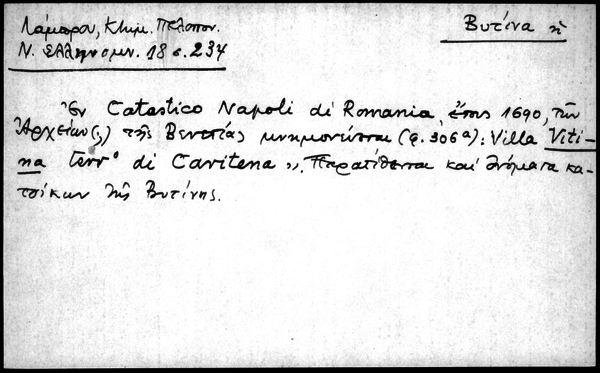 Λάμπρου, Κτημ. Πελοπον.
Ν. Ελληνομν. 18 σ. 234
Βυτίνα ἡ
Ἐν Catastico Napoli di Romania, ἔτους 1690, τῶν
Ἀρχείων(;) τῆς Βενετίας μνημονεύεται (φ. 306α): Villa Viti-
na terr° di Caritena». Παρατίθενται καὶ ὀνόματα κα-
τοίκων τῆς Βυτίνης.